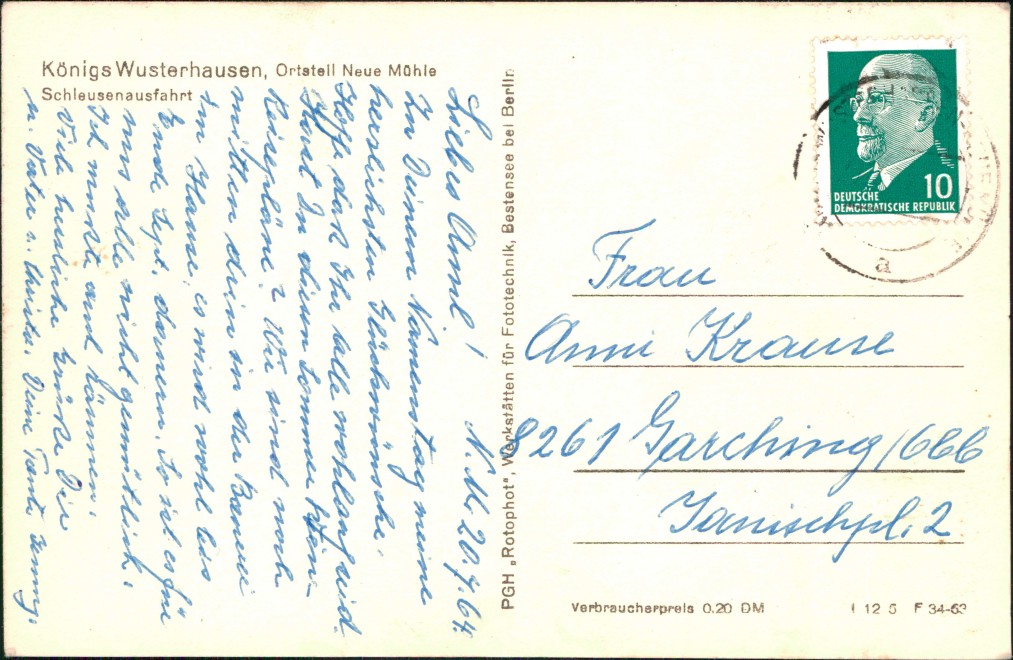 Königs Wusterhausen, Ortsteil Neue Mühle
Schleusenausfahrt
N. M. 20.7.64.
Liebes Annl!
Zu Deinem Namenstag meine
herzlichsten Glückwünsche.
Hoffe daß Ihr alle wohlauf seid.
Habt Ihr diesen Sommer keine
Reisepläne? Wir sind noch
mitten drin in der Bauerei
im Hause, es wird wohl bis
Ende Sept. dauern. So ist es für
uns alle nicht gemütlich.
Viele herzliche Grüße Dir
u. Vater u. Christa. Deine Tante Jenny.
PGH „Rotophot“, Werkstätten für Fototechnik, Bestensee bei Berlin
DEUTSCHE
DEMOKRATISCHE REPUBLIK
10
a
Frau
Anni Krause
8261 Garching/Obb
Janischpl. 2
Verbraucherpreis 0.20 DM
I 12 5 F 34-63